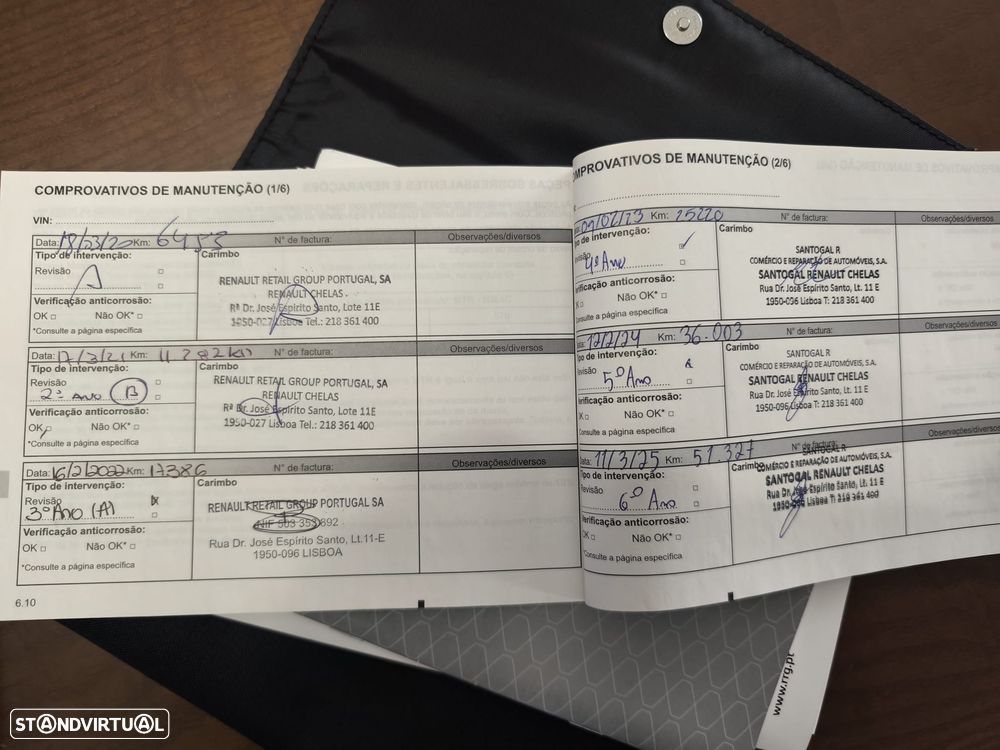 COMPROVATIVOS DE MANUTENÇÃO (1/6)
VIN:
Data: 18/03/20 Km: 6453 N° de factura: Observações/diversos
Tipo de intervenção: Carimbo
Revisão A
RENAULT RETAIL GROUP PORTUGAL, SA
RENAULT CHELAS
Rª Dr. José Espírito Santo, Lote 11E
1950-027 Lisboa Tel.: 218 361 400
Verificação anticorrosão:
OK □ Não OK* □
*Consulte a página específica
Data: 17/3/21 Km: 11 282 km N° de factura: Observações/diversos
Tipo de intervenção: Carimbo
Revisão
2º Ano (B)
RENAULT RETAIL GROUP PORTUGAL, SA
RENAULT CHELAS
Rª Dr. José Espírito Santo, Lote 11E
1950-027 Lisboa Tel.: 218 361 400
Verificação anticorrosão:
OK □ Não OK* □
*Consulte a página específica
Data: 16/2/2022 Km: 17386 N° de factura: Observações/diversos
Tipo de intervenção: Carimbo
Revisão
3º Ano (A)
RENAULT RETAIL GROUP PORTUGAL, SA
NIF 503 353 692
Rua Dr. José Espírito Santo, Lt.11-E
1950-096 LISBOA
Verificação anticorrosão:
OK □ Não OK* □
*Consulte a página específica
6.10
COMPROVATIVOS DE MANUTENÇÃO (2/6)
09/02/23 Km: 25220 N° de factura: Observações/diversos
Tipo de intervenção: Carimbo
4º Ano
SANTOGAL R
COMÉRCIO E REPARAÇÃO DE AUTOMÓVEIS, S.A.
SANTOGAL RENAULT CHELAS
Rua Dr. José Espírito Santo, Lt. 11 E
1950-096 Lisboa T: 218 361 400
Verificação anticorrosão:
Não OK* □
*Consulte a página específica
12/2/24 Km: 36.003 N° de factura: Observações/diversos
Tipo de intervenção: Carimbo
Revisão
5º Ano
SANTOGAL R
COMÉRCIO E REPARAÇÃO DE AUTOMÓVEIS, S.A.
SANTOGAL RENAULT CHELAS
Rua Dr. José Espírito Santo, Lt. 11 E
1950-096 Lisboa T: 218 361 400
Verificação anticorrosão:
Não OK* □
*Consulte a página específica
Data: 11/3/25 Km: 51.327 N° de factura: Observações/diversos
Tipo de intervenção: Carimbo
Revisão
6º Ano
SANTOGAL R
COMÉRCIO E REPARAÇÃO DE AUTOMÓVEIS, S.A.
SANTOGAL RENAULT CHELAS
Rua Dr. José Espírito Santo, Lt. 11 E
1950-096 Lisboa T: 218 361 400
Verificação anticorrosão:
OK □ Não OK* □
*Consulte a página específica
www.rrg.pt
STANDVIRTUAL